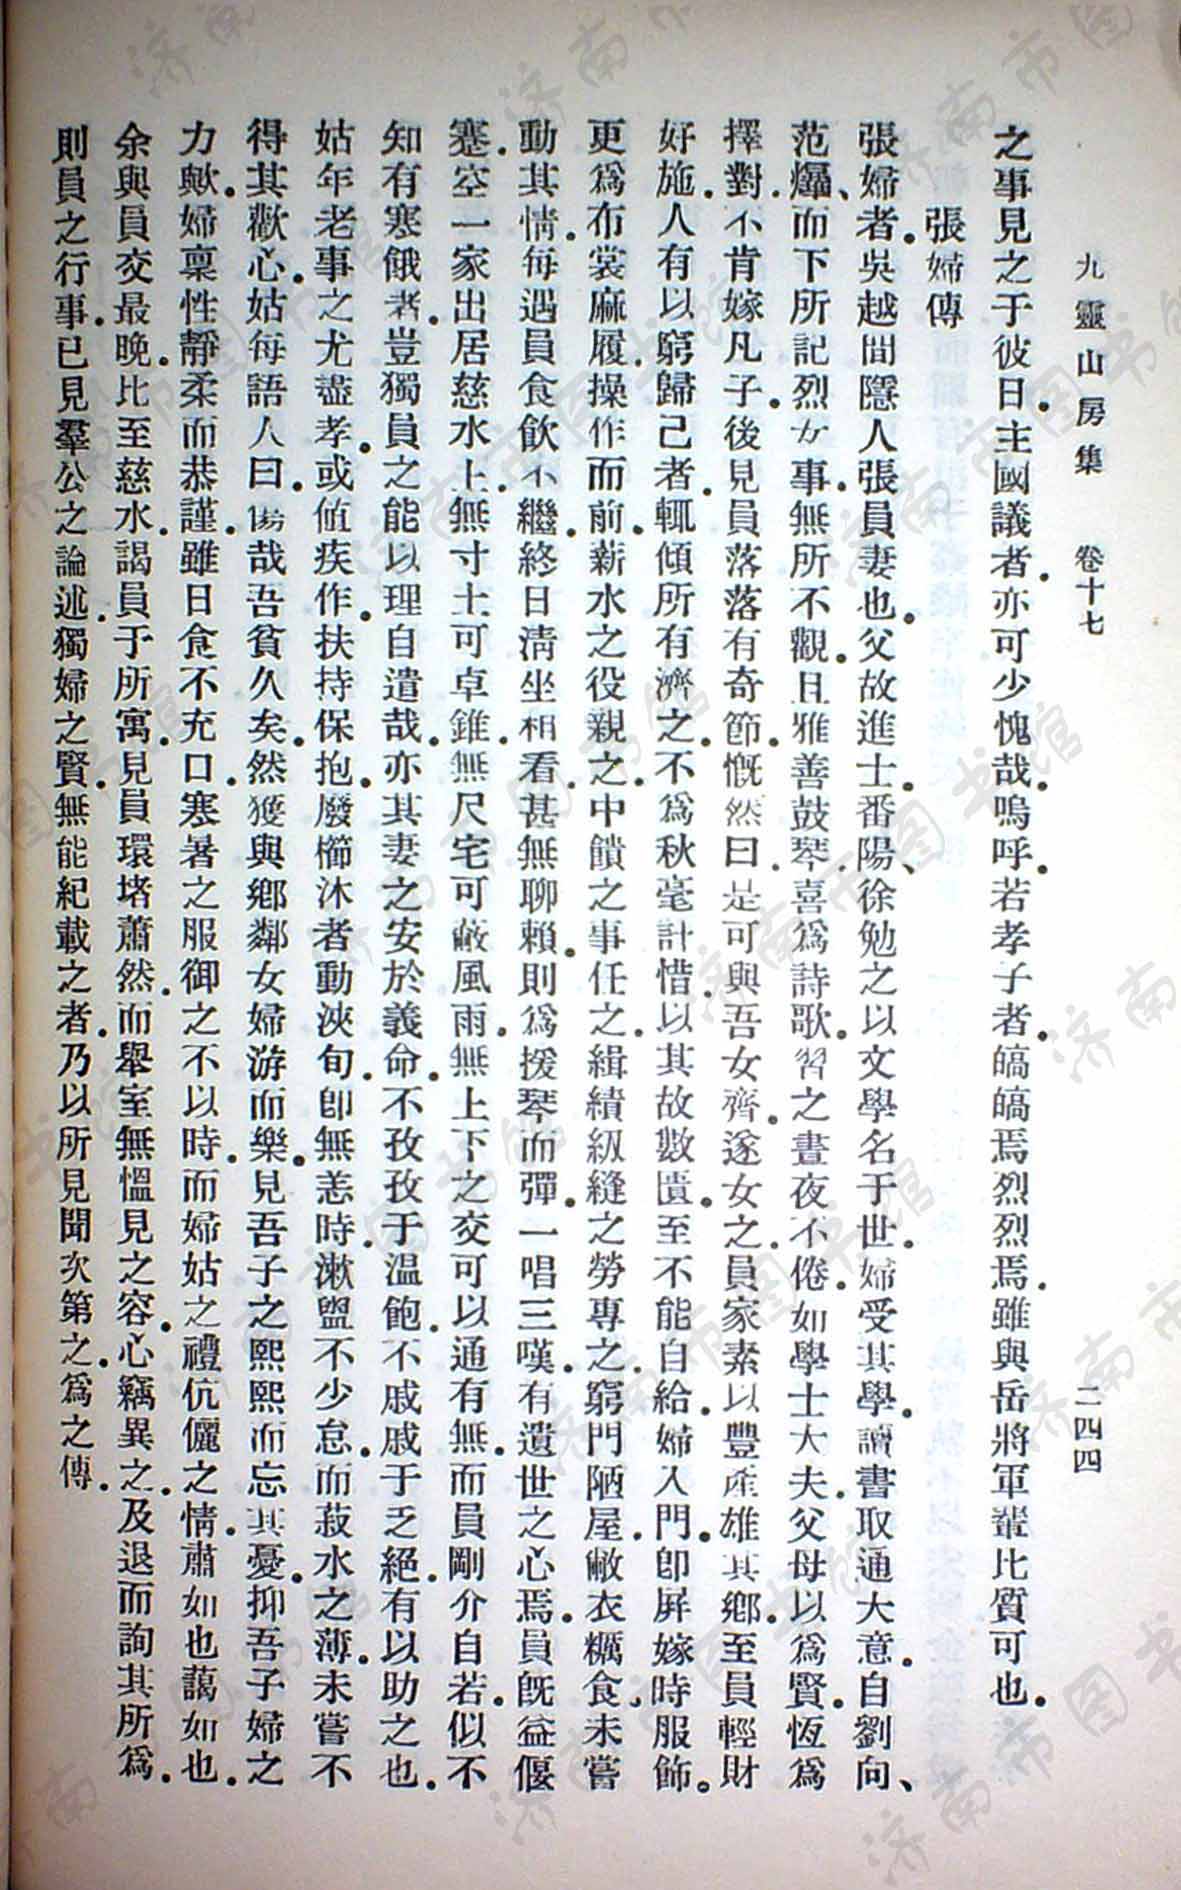 九靈山房集　卷十七　二四四
之事見之于彼日主國議者亦可少愧哉嗚呼若孝子者皜皜焉烈烈焉雖與岳將軍輩比質可也
張婦傳
張婦者吳越間隱人張員妻也父故進士番陽徐勉之以文學名于世婦受其學讀書取通大意自劉向、
范曄而下所記烈女事無所不觀且雅善鼓琴喜為詩歌習之晝夜不倦如學士大夫父母以為賢恆為
擇對不肯嫁凡子後見員落落有奇節慨然曰是可與吾女齊遂女之員家素以豐產雄其鄉至員輕財
好施人有以窮歸己者輒傾所有濟之不為秋毫計惜以其故數匱至不能自給婦入門即屏嫁時服飾。
更為布裳麻屨操作而前薪水之役親之中饋之事任之緝績紉縫之勞專之窮門陋屋敝衣糲食未嘗
動其情每遇員食飲不繼終日清坐相看甚無聊賴則為援琴而彈一唱三嘆有遺世之心焉員既益偃
蹇空一家出居慈水上無寸土可卓錐無尺宅可蔽風雨無上下之交可以通有無而員剛介自若似不
知有寒餓者豈獨員之能以理自遣哉亦其妻之安於義命不孜孜于溫飽不戚戚于乏絕有以助之也
姑年老事之尤盡孝或值疾作扶持保抱廢櫛沐者動浹旬即無恙時漱盥不少怠而菽水之薄未嘗不
得其歡心姑每語人曰傷哉吾貧久矣然獲與鄉鄰女婦游而樂見吾子之熙熙而忘其憂抑吾子婦之
力歟婦稟性靜柔而恭謹雖日食不充口寒暑之服御之不以時而婦姑之禮伉儷之情肅如也藹如也
余與員交最晚比至慈水謁員于所寓見員環堵蕭然而舉室無慍見之容心竊異之及退而詢其所為
則員之行事已見羣公之論述獨婦之賢無能紀載之者乃以所見聞次第之為之傳